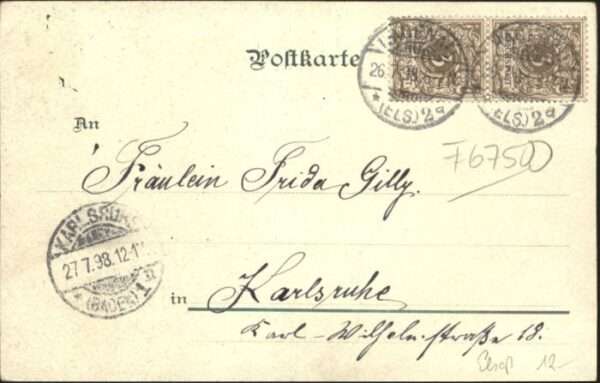 Postkarte
26
(ELS) 2 a
(ELS) 2 a
An
F 67500
Fräulein Frida Gilly.
KARLSRUHE
27.7.98.12-1
(BADEN) 1
in Karlsruhe
Karl-Wilhelmstraße 18.
Elsaß 12-